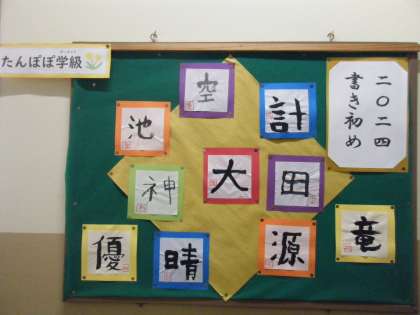 たんぽぽ学級
二〇二四
書き初め
空
計
池
大
田
神
竜
優
晴
源